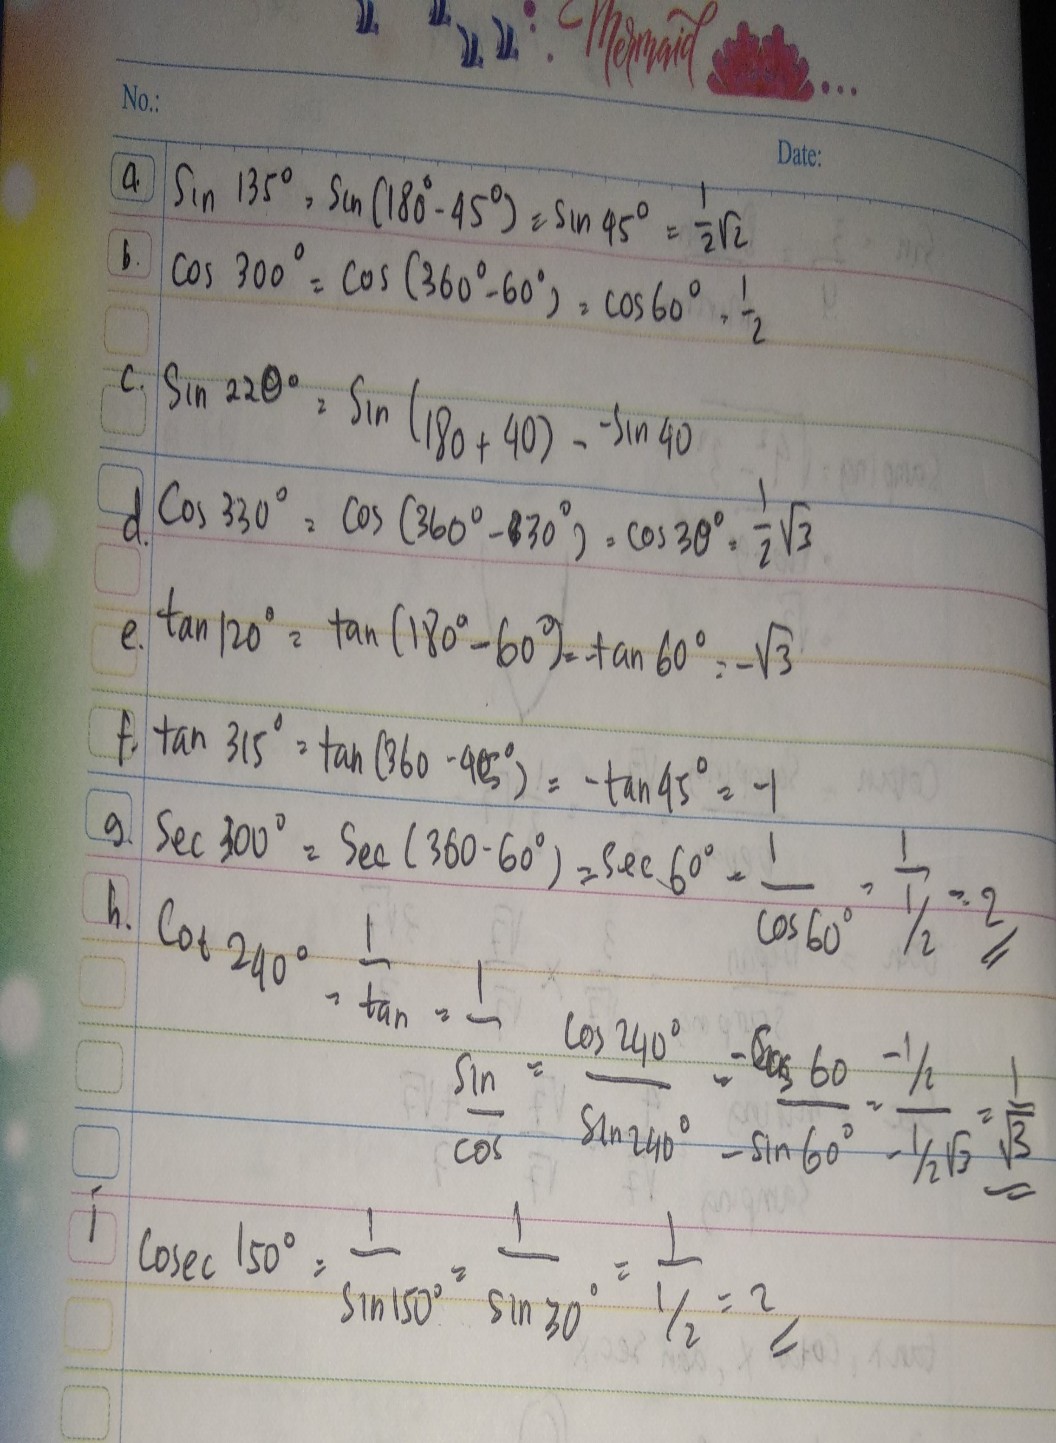 Mermaid
No.:
Date:
a. Sin 135° = Sin (180° - 45°) = Sin 45° = 1/2 √2
b. Cos 300° = Cos (360° - 60°) = cos 60° = 1/2
c. Sin 220° = Sin (180 + 40) = -Sin 40
d. Cos 330° = Cos (360° - 30°) = cos 30° = 1/2 √3
e. tan 120° = tan (180° - 60°) = -tan 60° = -√3
f. tan 315° = tan (360 - 45°) = -tan 45° = -1
g. Sec 300° = Sec (360 - 60°) = Sec 60° = 1/cos 60° = 1/(1/2) = 2
h. Cot 240° = 1/tan = 1/(Sin/cos) = Cos 240°/Sin 240° = -Cos 60/-Sin 60° = (-1/2)/(-1/2 √3) = 1/√3
i Cosec 150° = 1/Sin 150° = 1/Sin 30° = 1/(1/2) = 2